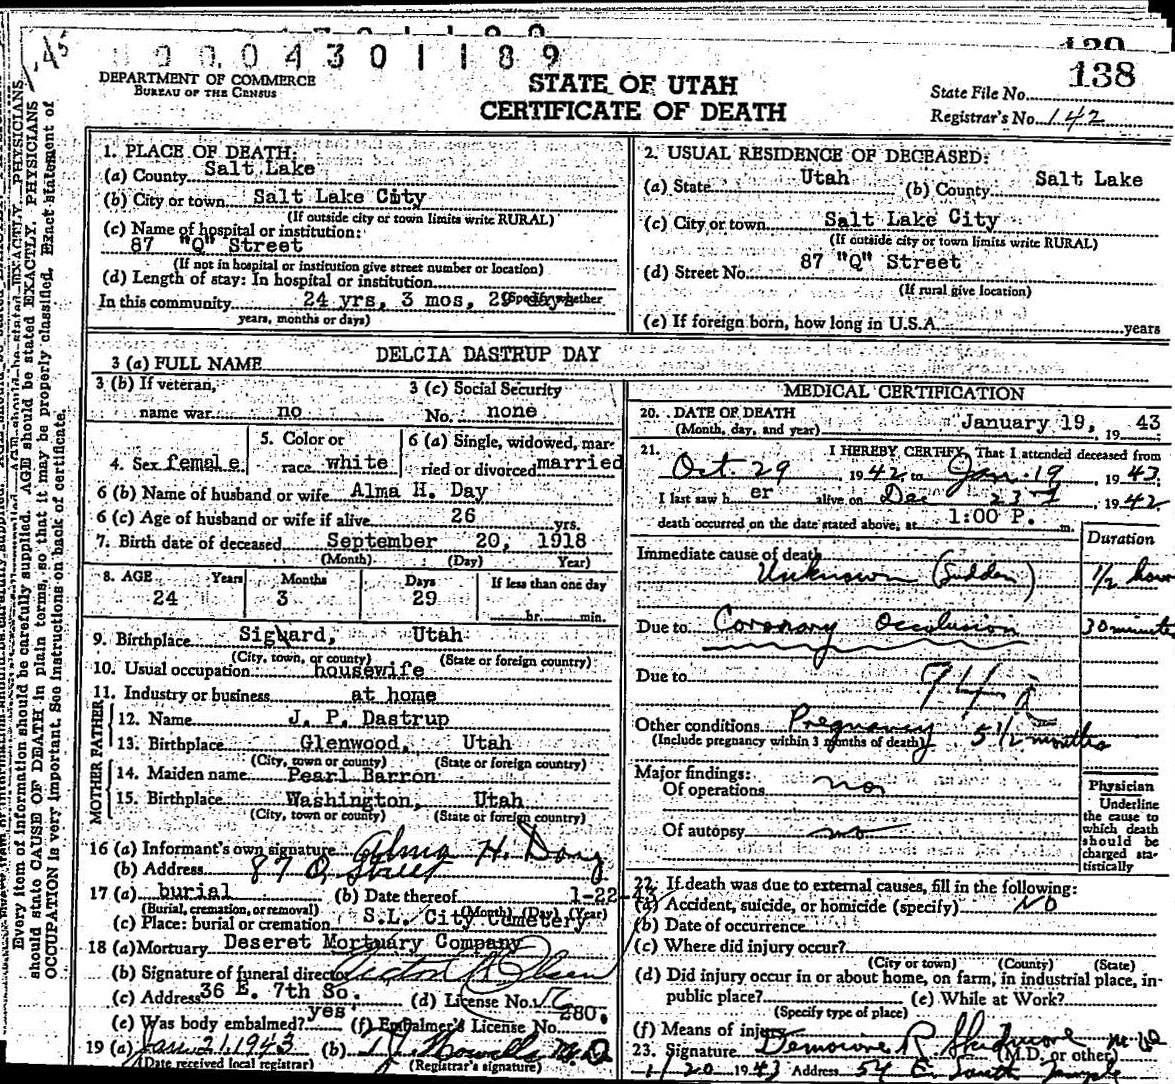 0 0 0 4 3 0 1 1 8 9
DEPARTMENT OF COMMERCE
BUREAU OF THE CENSUS
STATE OF UTAH
CERTIFICATE OF DEATH
138
State File No.
Registrar's No. 142
1. PLACE OF DEATH:
(a) County Salt Lake
(b) City or town Salt Lake City
(If outside city or town limits write RURAL)
(c) Name of hospital or institution:
87 "Q" Street
(If not in hospital or institution give street number or location)
(d) Length of stay: In hospital or institution
In this community 24 yrs, 3 mos, 29 days (Specify whether
years, months or days)
2. USUAL RESIDENCE OF DECEASED:
(a) State Utah (b) County Salt Lake
(c) City or town Salt Lake City
(If outside city or town limits write RURAL)
(d) Street No. 87 "Q" Street
(If rural give location)
(e) If foreign born, how long in U.S.A. years
3 (a) FULL NAME DELCIA DASTRUP DAY
3 (b) If veteran, name war no
3 (c) Social Security No. none
4. Sex female
5. Color or race white
6 (a) Single, widowed, married or divorced married
6 (b) Name of husband or wife Alma H. Day
6 (c) Age of husband or wife if alive 26 yrs.
7. Birth date of deceased September 20, 1918
(Month) (Day) Year)
8. AGE Years Months Days If less than one day
24 3 29 hr. min.
9. Birthplace Sigurd, Utah
(City, town, or county) (State or foreign country)
10. Usual occupation housewife
11. Industry or business at home
FATHER
12. Name J. P. Dastrup
13. Birthplace Glenwood, Utah
(City, town or county) (State or foreign country)
MOTHER
14. Maiden name Pearl Barron
15. Birthplace Washington, Utah
(City, town or county) (State or foreign country)
16 (a) Informant's own signature Alma H. Day
(b) Address 87 Q Street
17 (a) burial (b) Date thereof 1-22-43
(Burial, cremation, or removal) (Month) (Day) (Year)
(c) Place: burial or cremation S.L. City Cemetery
18 (a) Mortuary Deseret Mortuary Company
(b) Signature of funeral director
(c) Address 36 E. 7th So. (d) License No. 280.
(e) Was body embalmed? yes (f) Embalmer's License No.
19 (a) Jan. 21, 1943 (b) M.D.
(Date received local registrar) (Registrar's signature)
MEDICAL CERTIFICATION
20. DATE OF DEATH
(Month, day, and year) January 19, 19 43
21. I HEREBY CERTIFY, That I attended deceased from
Oct. 29, 19 42 to Jan. 19 19 43;
I last saw h er alive on Dec 23 19 42
death occurred on the date stated above, at 1:00 P. m.
Duration
Immediate cause of death
Unknown (Sudden) 1/2 hour
Due to Coronary Occlusion 30 minutes
Due to 94
Other conditions Pregnancy 5 1/2 months
(Include pregnancy within 3 months of death)
Major findings:
Of operations no
Of autopsy no
Physician
Underline
the cause to
which death
should be
charged sta-
tistically
22. If death was due to external causes, fill in the following:
(a) Accident, suicide, or homicide (specify) No
(b) Date of occurrence
(c) Where did injury occur?
(City or town) (County) (State)
(d) Did injury occur in or about home, on farm, in industrial place, in-
public place? (e) While at Work?
(Specify type of place)
(f) Means of injury
23. Signature R M.D.
(M.D. or other)
1/20 1943 Address 54 E. South Temple
Every item of information should be carefully supplied. AGE should be stated EXACTLY. PHYSICIANS
should state CAUSE OF DEATH in plain terms, so that it may be properly classified. Exact statement of
OCCUPATION is very important. See instructions on back of certificate.